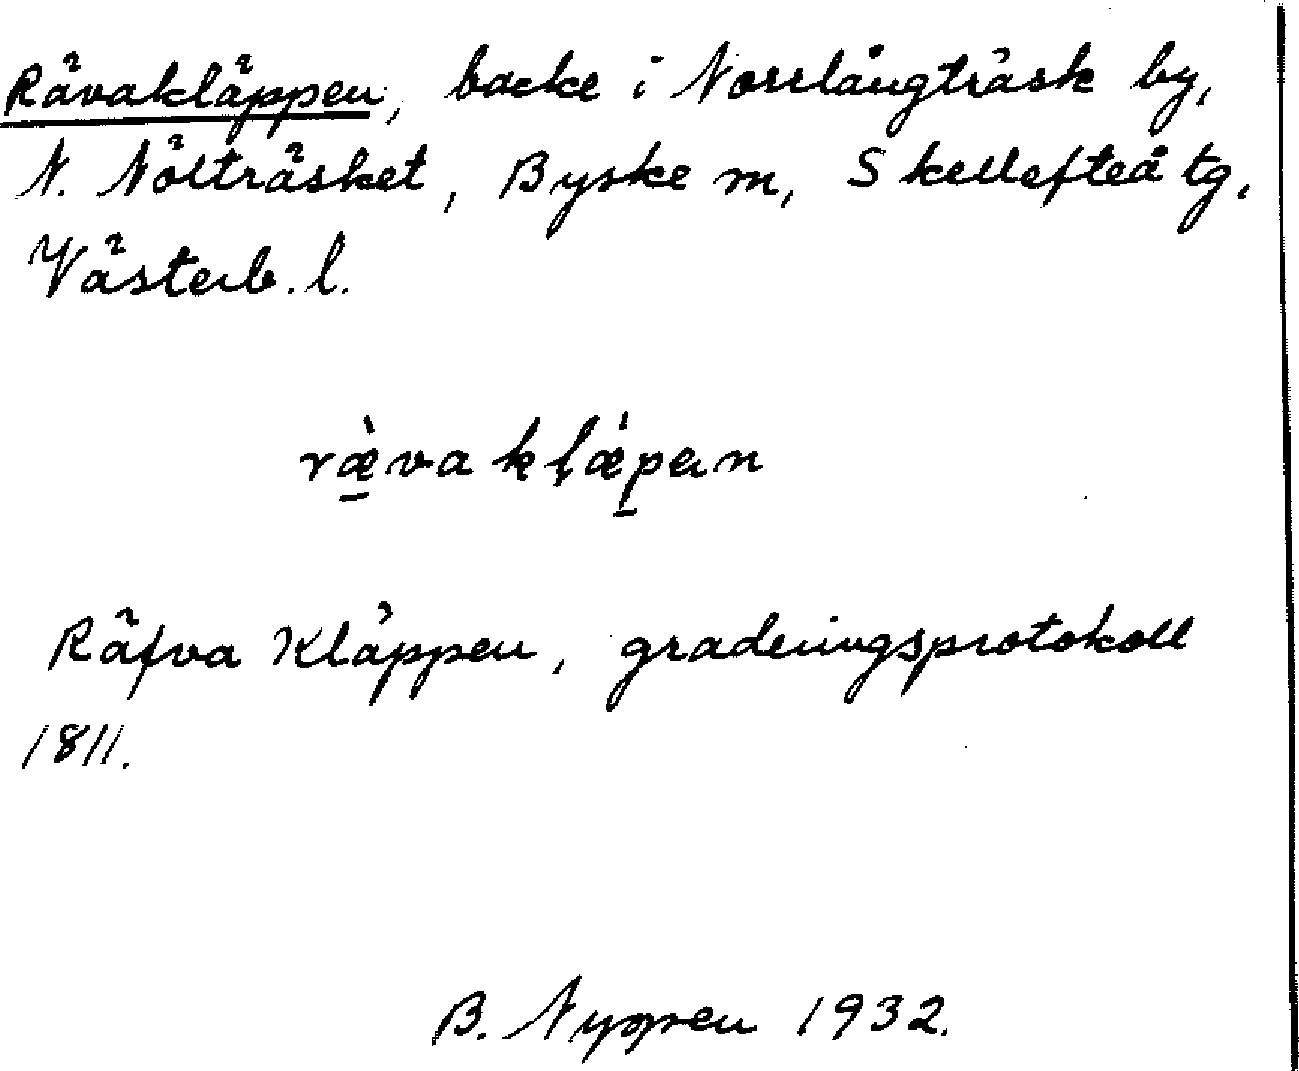 Rävakläppen, backe i Norrlångträsk by,
N. Nölträsket, Byske sn, Skellefteå tg.
Västerb. l.
ræ̀vaklæ̀pen
Räfva Kläppen, graderingsprotokoll
1811.
B. 1932.